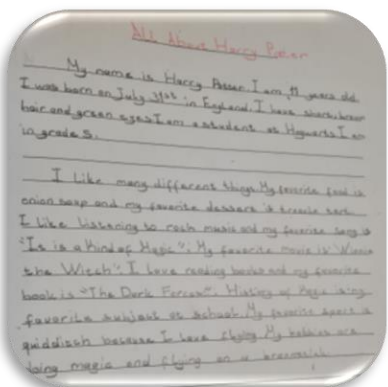 All About Harry Potter
My name is Harry Potter. I am 11 years old.
I was born on July 31st in England. I have short, brown
hair and green eyes I am a student at Hogwarts I am
in grade 5.
I like many different things. My favorite food is
onion soup and my favorite dessert is treacle tart.
I like listening to rock music and my favorite song is
"It is a Kind of Magic". My favorite movie is "Winnie
the Witch". I love reading books and my favorite
book is "The Dark Forces". History of Magic is my
favorite subject at school. My favorite sport is
quidditch because I love flying. My hobbies are
doing magic and flying on a broomstick.